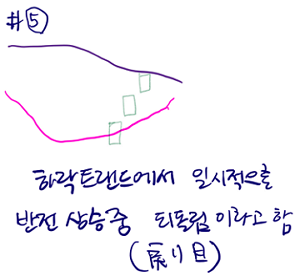 #⑤
하락트랜드에서 일시적으로
반전 상승중 되돌림이라고 함
(戻り目)